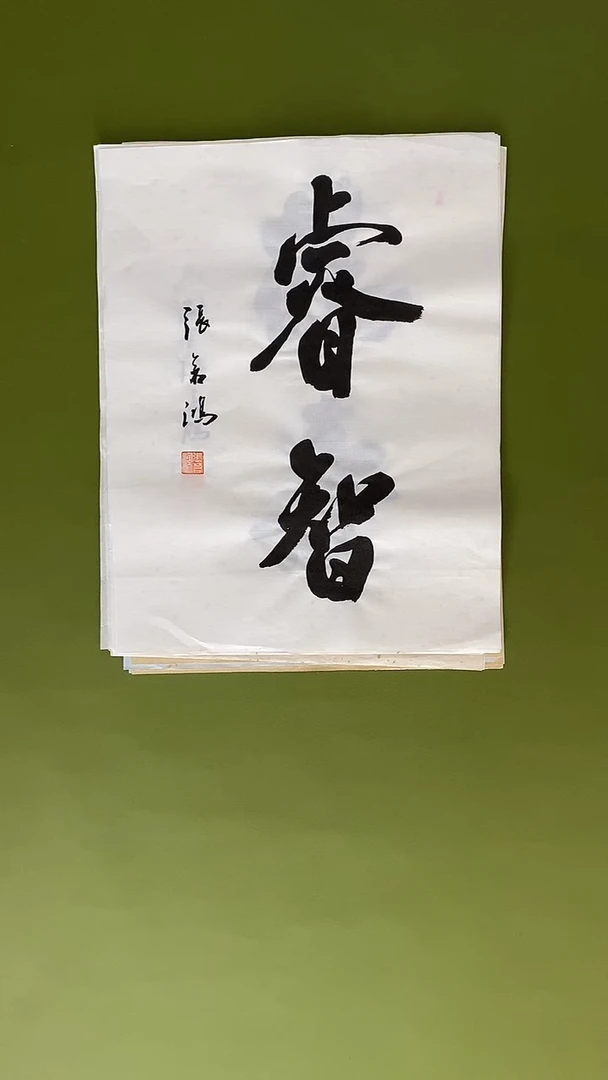 睿智
張鴻